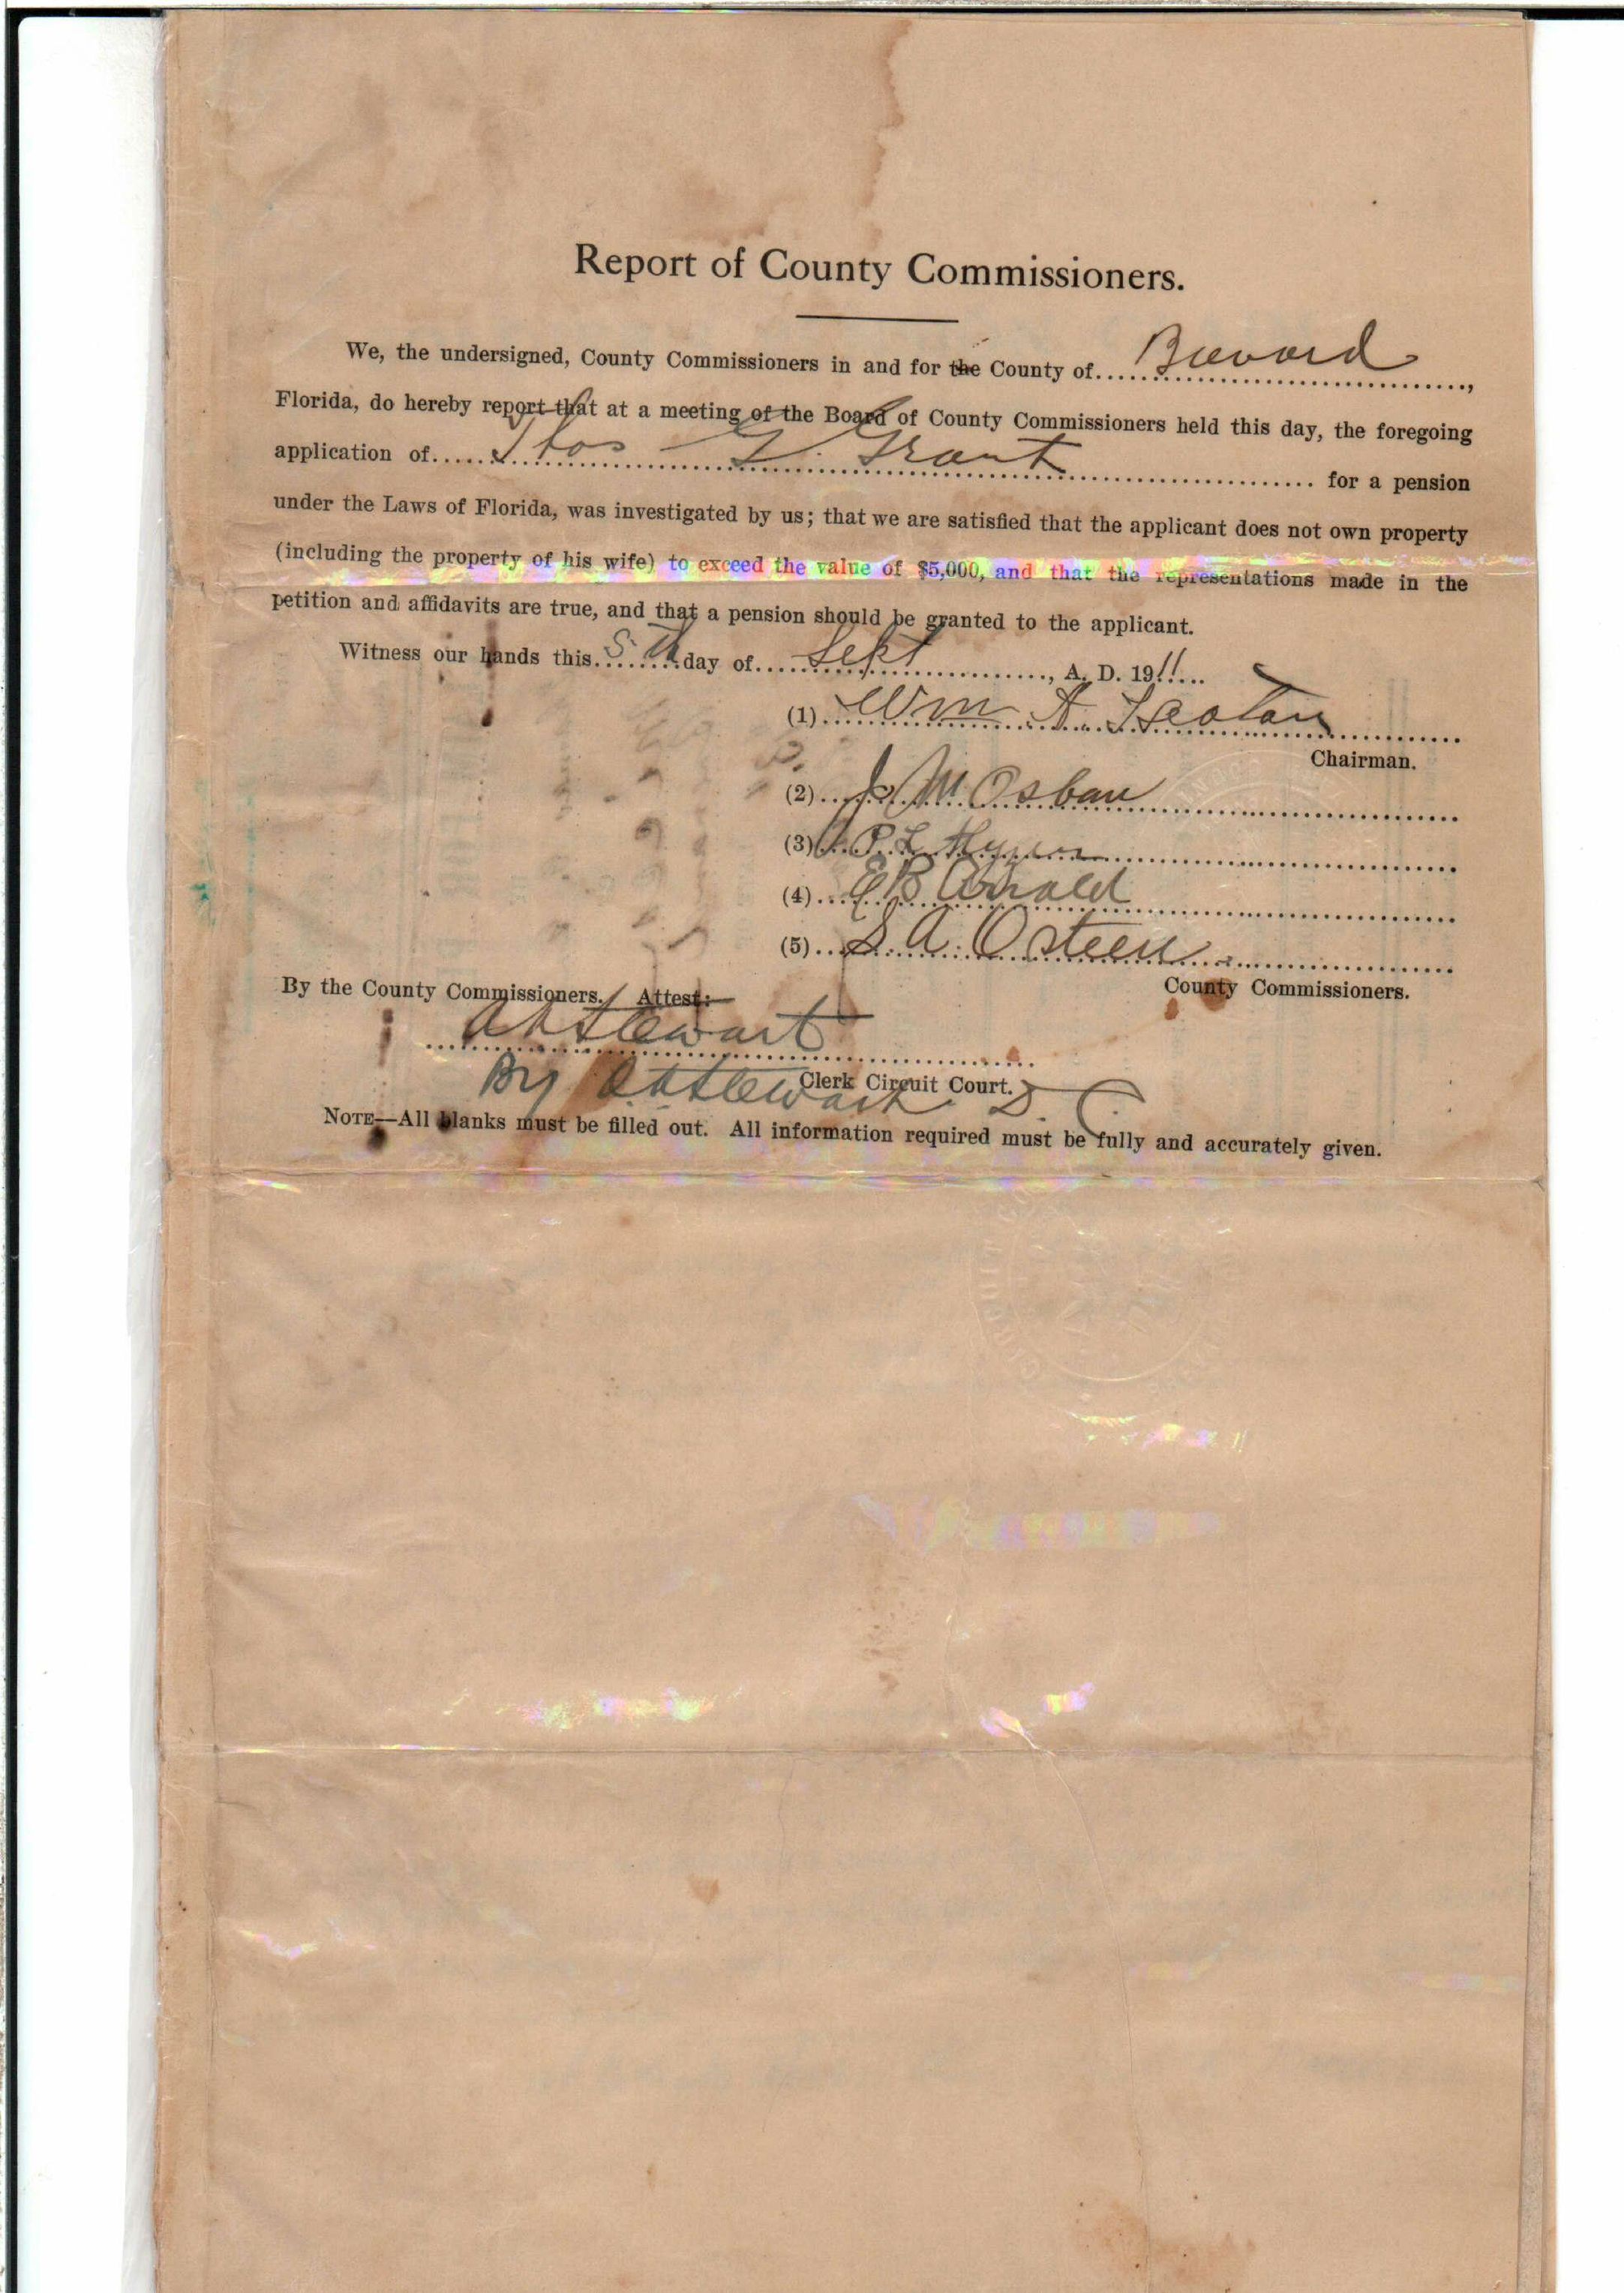 Report of County Commissioners.
We, the undersigned, County Commissioners in and for the County of Brevard,
Florida, do hereby report that at a meeting of the Board of County Commissioners held this day, the foregoing
application of Thos G. Grant for a pension
under the Laws of Florida, was investigated by us; that we are satisfied that the applicant does not own property
(including the property of his wife) to exceed the value of $5,000, and that the representations made in the
petition and affidavits are true, and that a pension should be granted to the applicant.
Witness our hands this 5th day of Sept, A. D. 1911
(1) Wm A.
Chairman.
(2) J M
(3) P L
(4) E B Arnold
(5) S. A. Osteen
By the County Commissioners. Attest:
County Commissioners.
A A Stewart
Clerk Circuit Court.
By Stewart D. C.
NOTE—All blanks must be filled out. All information required must be fully and accurately given.